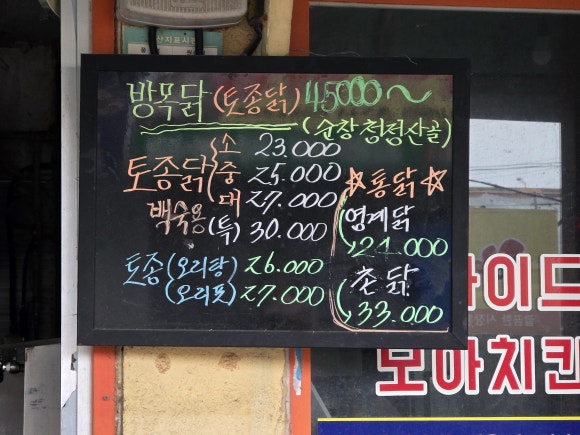 방목닭 (토종닭) 45000~
(순창청정산골)
토종닭 소 23.000
중 25.000
대 27.000
백숙용 (특) 30.000
토종 (오리탕) 26.000
(오리포) 27.000
☆통닭☆
영계닭
24.000
촌닭
33.000
이드
모아치킨